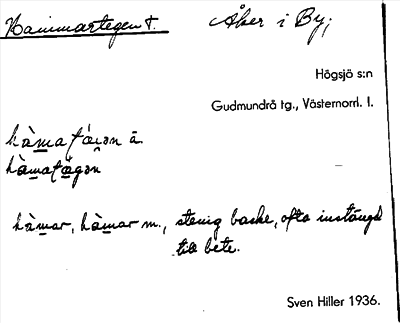 Hammartegen t. Åker i By;
Högsjö s:n
Gudmundrå tg., Västernorrl. l.
hàmar, hàmar m., stenig backe, ofta instängd
till bete.
Sven Hiller 1936.